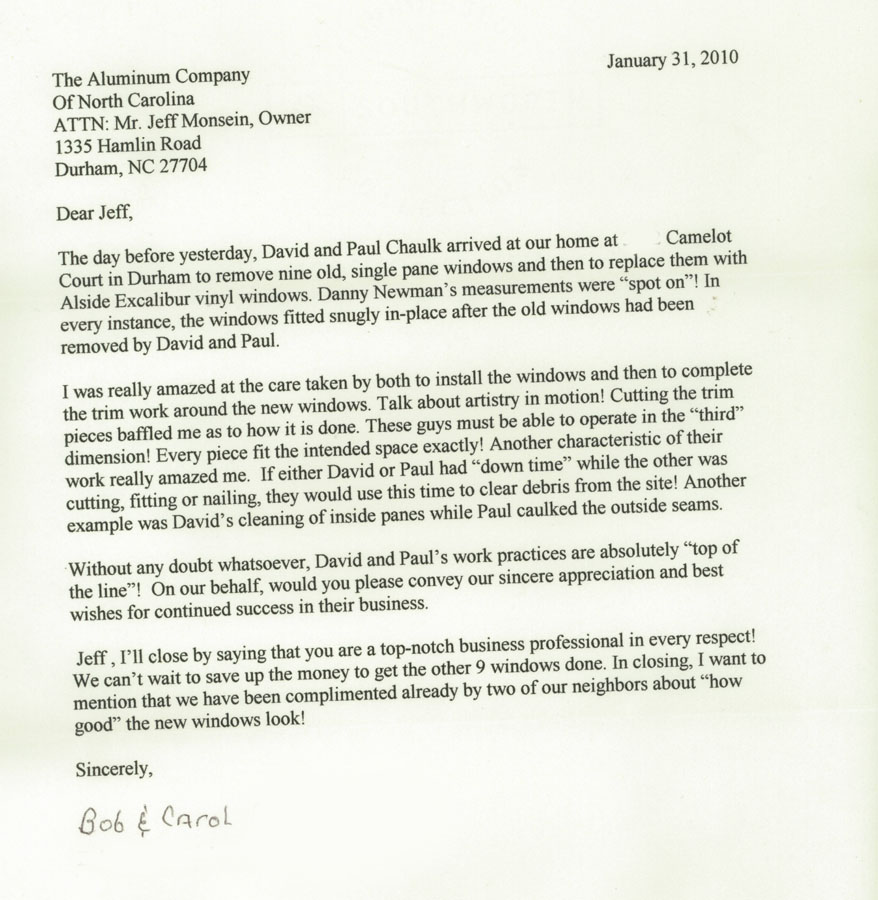 January 31, 2010
The Aluminum Company
Of North Carolina
ATTN: Mr. Jeff Monsein, Owner
1335 Hamlin Road
Durham, NC 27704
Dear Jeff,
The day before yesterday, David and Paul Chaulk arrived at our home at Camelot
Court in Durham to remove nine old, single pane windows and then to replace them with
Alside Excalibur vinyl windows. Danny Newman's measurements were “spot on”! In
every instance, the windows fitted snugly in-place after the old windows had been
removed by David and Paul.
I was really amazed at the care taken by both to install the windows and then to complete
the trim work around the new windows. Talk about artistry in motion! Cutting the trim
pieces baffled me as to how it is done. These guys must be able to operate in the “third”
dimension! Every piece fit the intended space exactly! Another characteristic of their
work really amazed me. If either David or Paul had “down time” while the other was
cutting, fitting or nailing, they would use this time to clear debris from the site! Another
example was David's cleaning of inside panes while Paul caulked the outside seams.
Without any doubt whatsoever, David and Paul's work practices are absolutely “top of
the line”! On our behalf, would you please convey our sincere appreciation and best
wishes for continued success in their business.
Jeff , I'll close by saying that you are a top-notch business professional in every respect!
We can't wait to save up the money to get the other 9 windows done. In closing, I want to
mention that we have been complimented already by two of our neighbors about “how
good” the new windows look!
Sincerely,
Bob & Carol